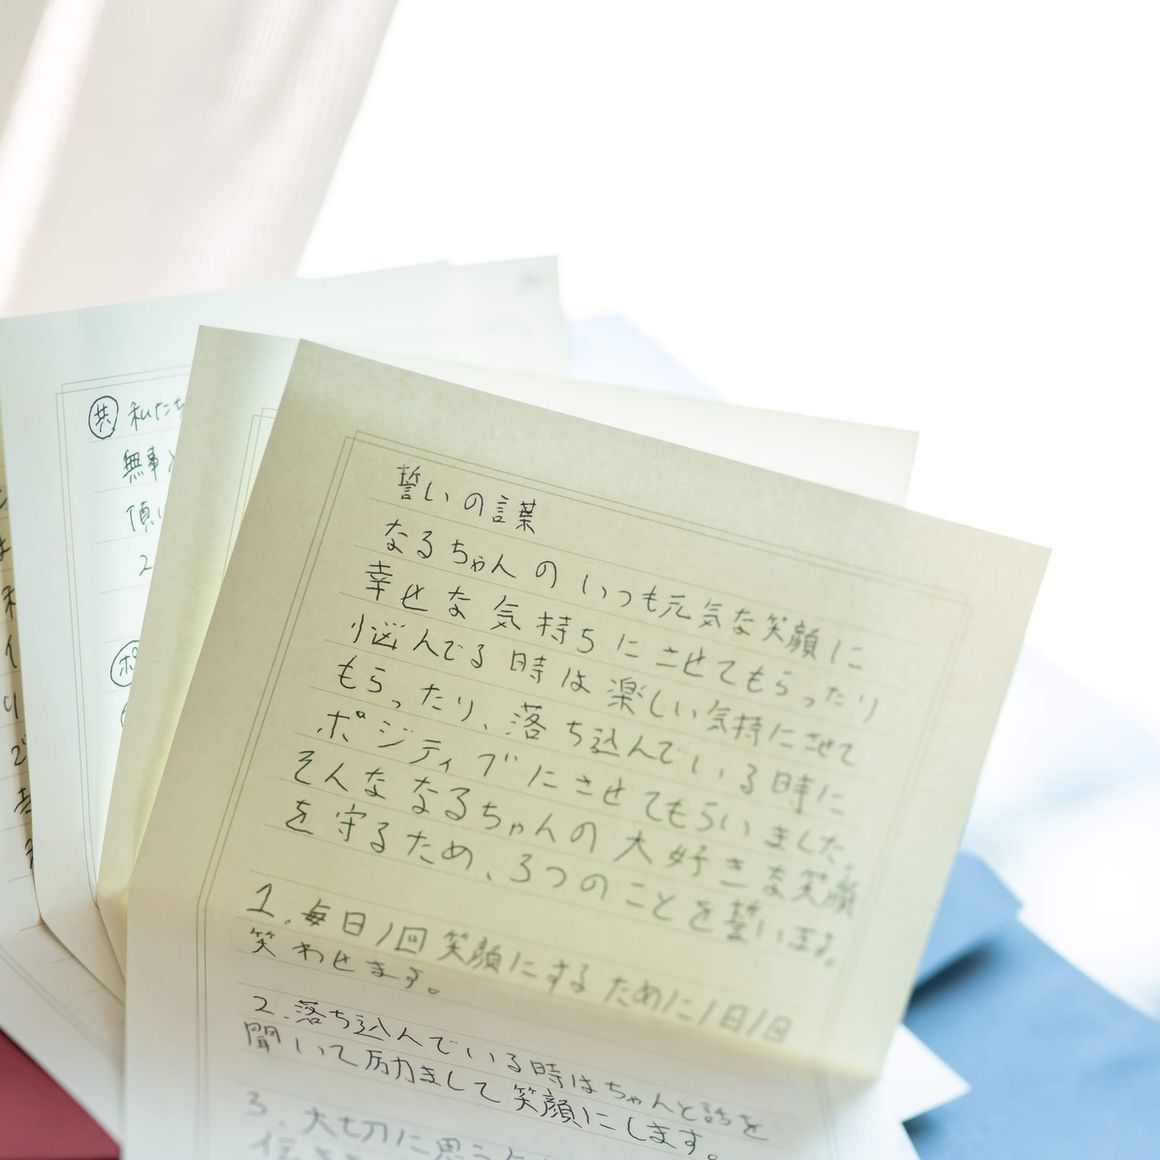 誓いの言葉
なるちゃんのいつも元気な笑顔に
幸せな気持ちにさせてもらったり
悩んでる時は楽しい気持にさせて
もらったり、落ち込んでいる時に
ポジティブにさせてもらいました。
そんななるちゃんの大好きな笑顔
を守るため、3つのことを誓います。
1.毎日1回笑顔にするために1日1回
笑わせます。
2.落ち込んでいる時はちゃんと話を
聞いて励まして笑顔にします。
3.大切に思う
共 私たち
無事
頂
2